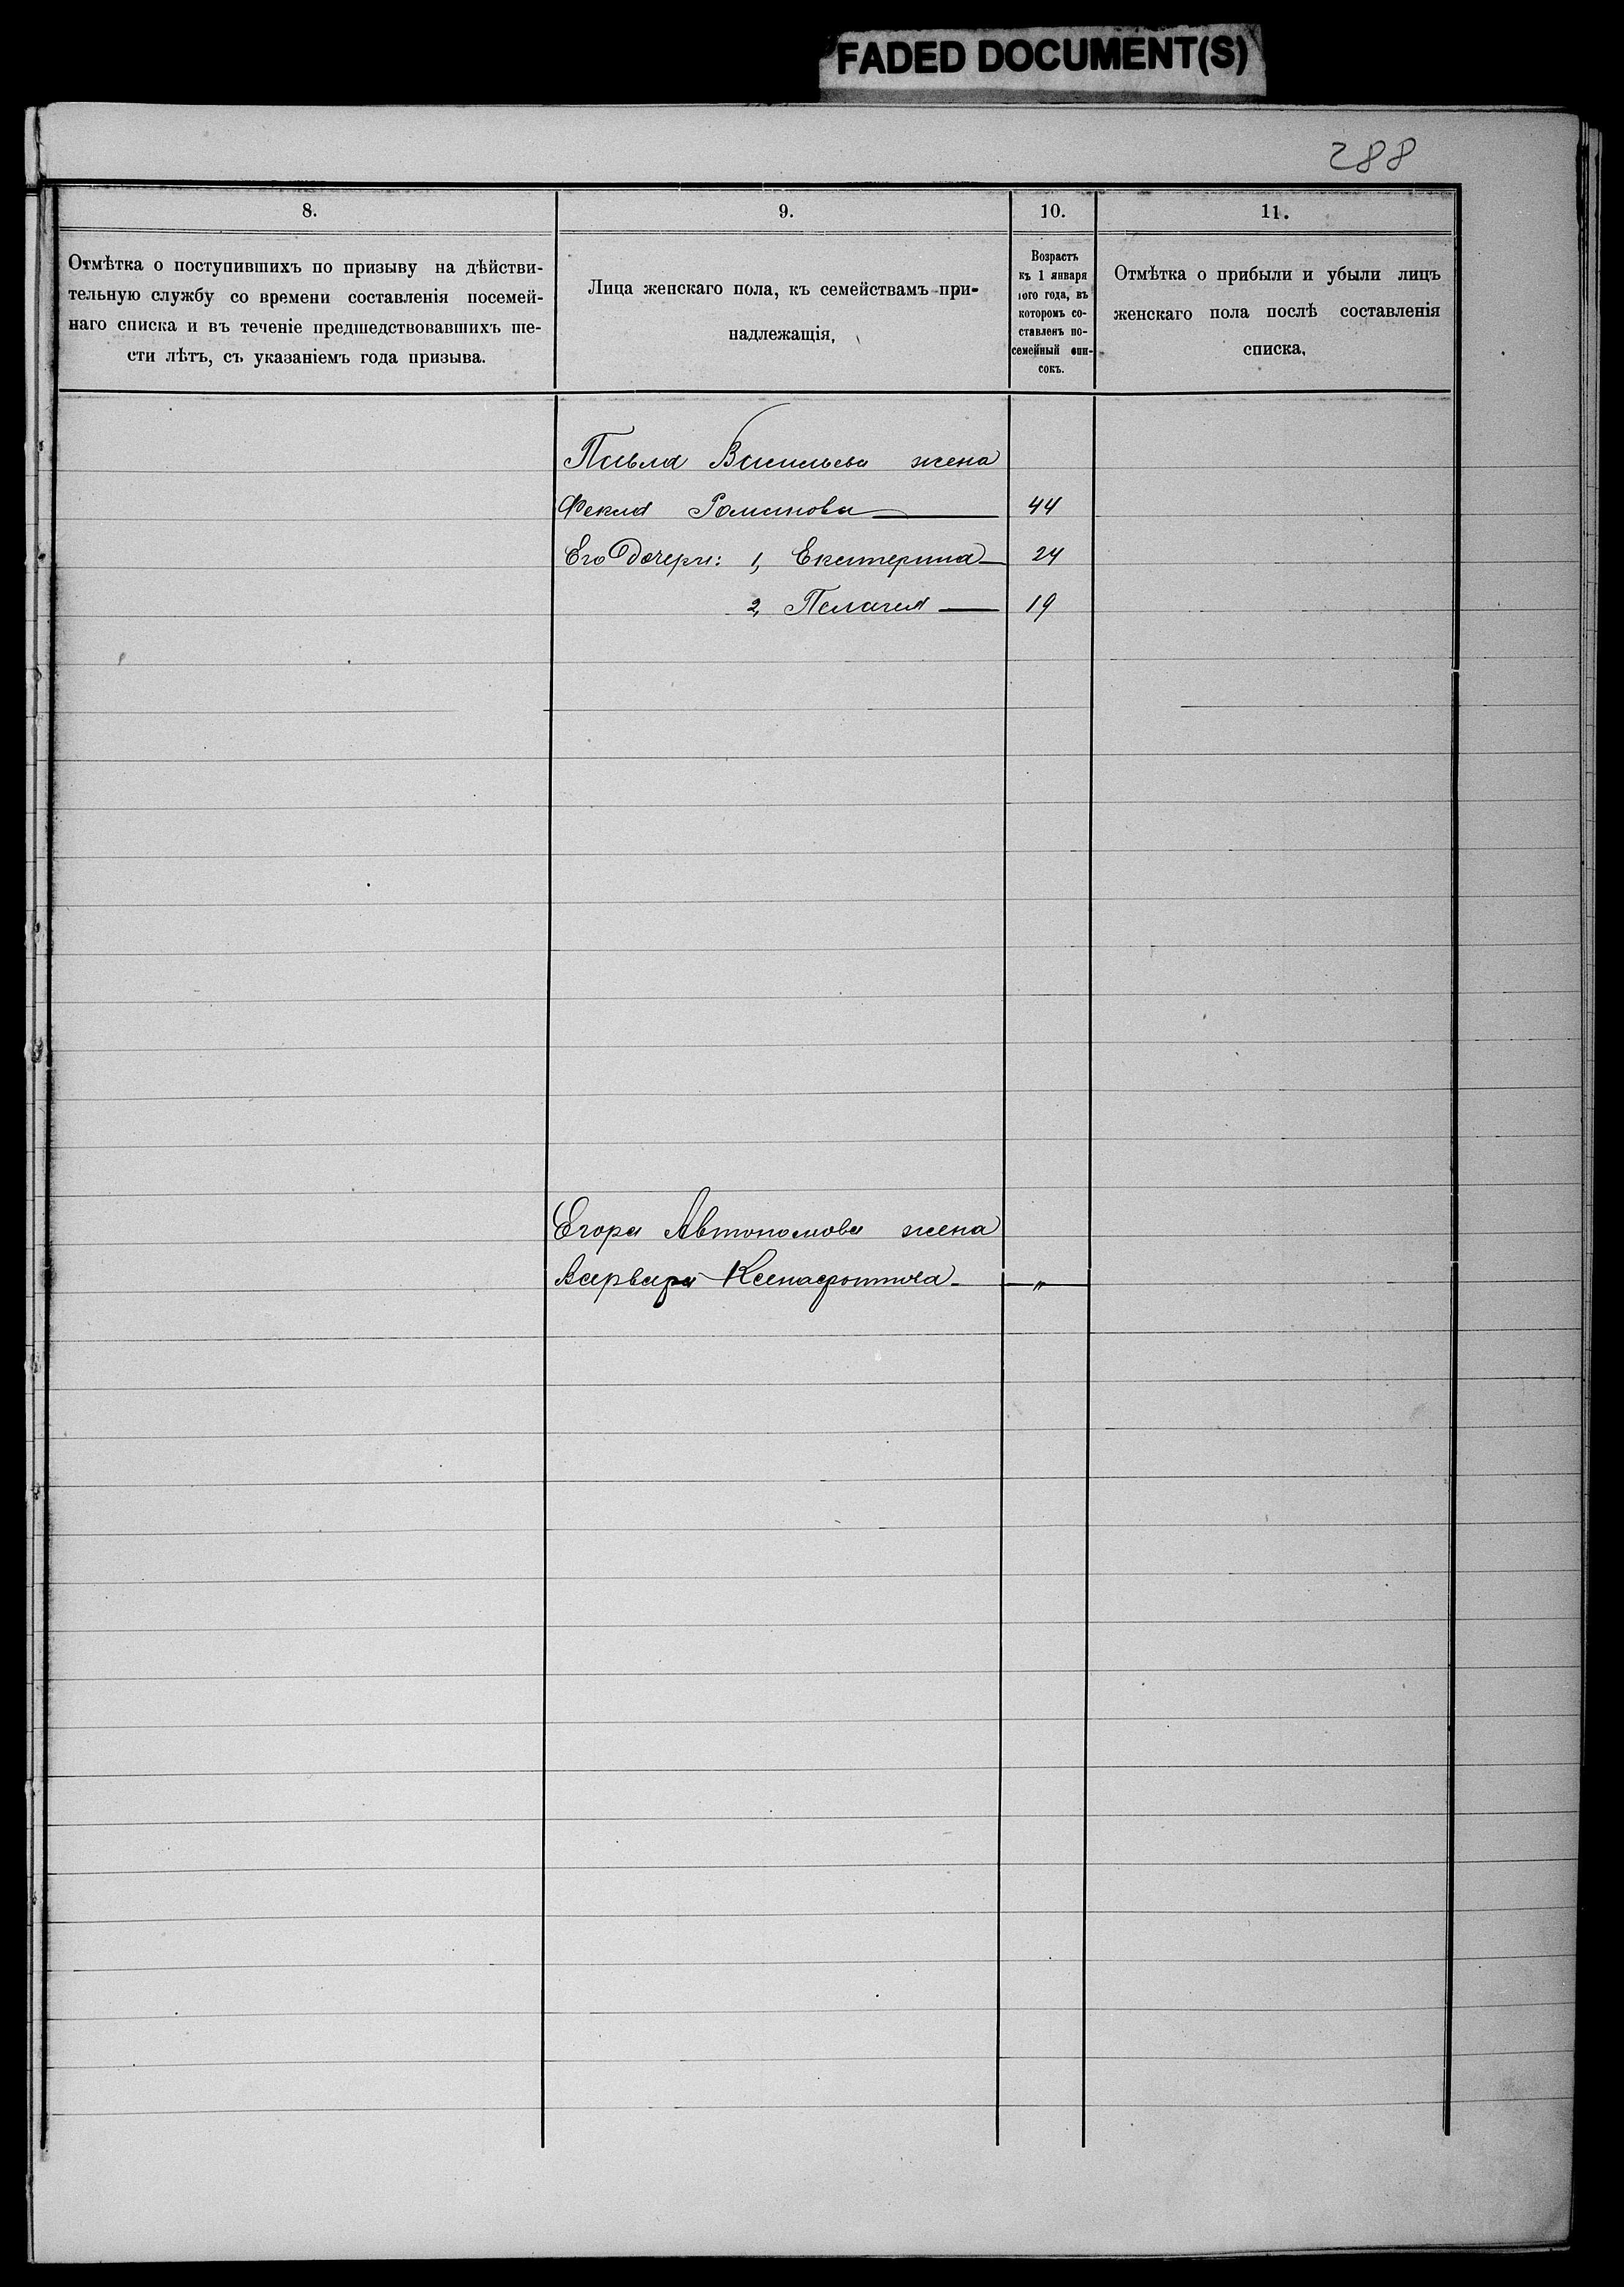 FADED DOCUMENT(S)
288
8.
Отмѣтка о поступившихъ по призыву на дѣйстви-
тельную службу со времени составленія посемей-
наго списка и въ теченіе предшедствовавшихъ ше-
сти лѣтъ, съ указаніемъ года призыва.
9.
Лица женскаго пола, къ семействамъ при-
надлежащія,
10.
Возрастъ
къ 1 января
того года, въ
которомъ со-
ставленъ по-
семейный спи-
сокъ.
11.
Отмѣтка о прибыли и убыли лицъ
женскаго пола послѣ составленія
списка,
Павла Васильева жена
Фекла Романова 44
Его дочери: 1, Екатерина 24
2, Пелагея 19
Егора Автономова жена
Варвара Ксенофонтова "